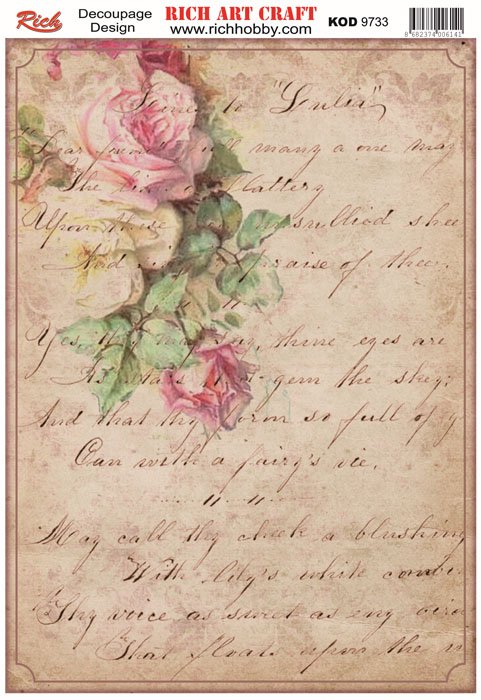 Rich
Decoupage
Design
RICH ART CRAFT
www.richhobby.com
KOD 9733
8 682374 006141
Lines to "Julia"
"Dear friend" will many a one may
The line of flattery
Upon these unsullied shee
And in praise of thee.
" "
Yes, they may say, thine eyes are
As stars that gem the sky;
And that thy form so full of g
Can with a fairy's vie,
" "
May call thy cheek a blushing
With lily's white combi
Thy voice as sweet as any bird
That floats upon the